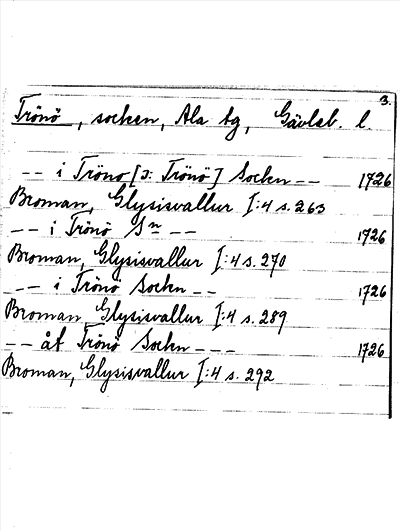 3.
Trönö, socken, Ala tg, Gävleb. l.
-- i Tröno [ɔ: Trönö] Socken -- 1726
Broman, Glysisvallur I:4 s. 263
-- i Trönö Sn -- 1726
Broman, Glysisvallur I:4 s. 270
-- i Trönö Socken -- 1726
Broman Glysisvallur I:4 s. 289
-- åt Trönö Socken --- 1726
Broman, Glysisvallur I:4 s. 292